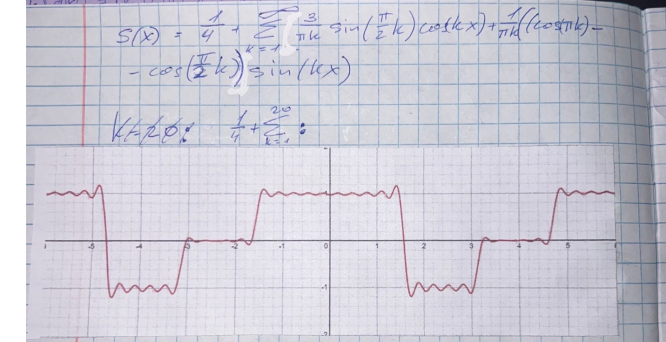 S(x) = 1/4 + ∑ k=1 ∞ ( 3/πk sin(π/2 k) cos kx) + 1/πk ((cos(πk) -
- cos(π/2 k)) sin(kx)
1/4 + ∑ k=1 20 :
-5 -4 -3 -2 -1 0 1 2 3 4 5
-1